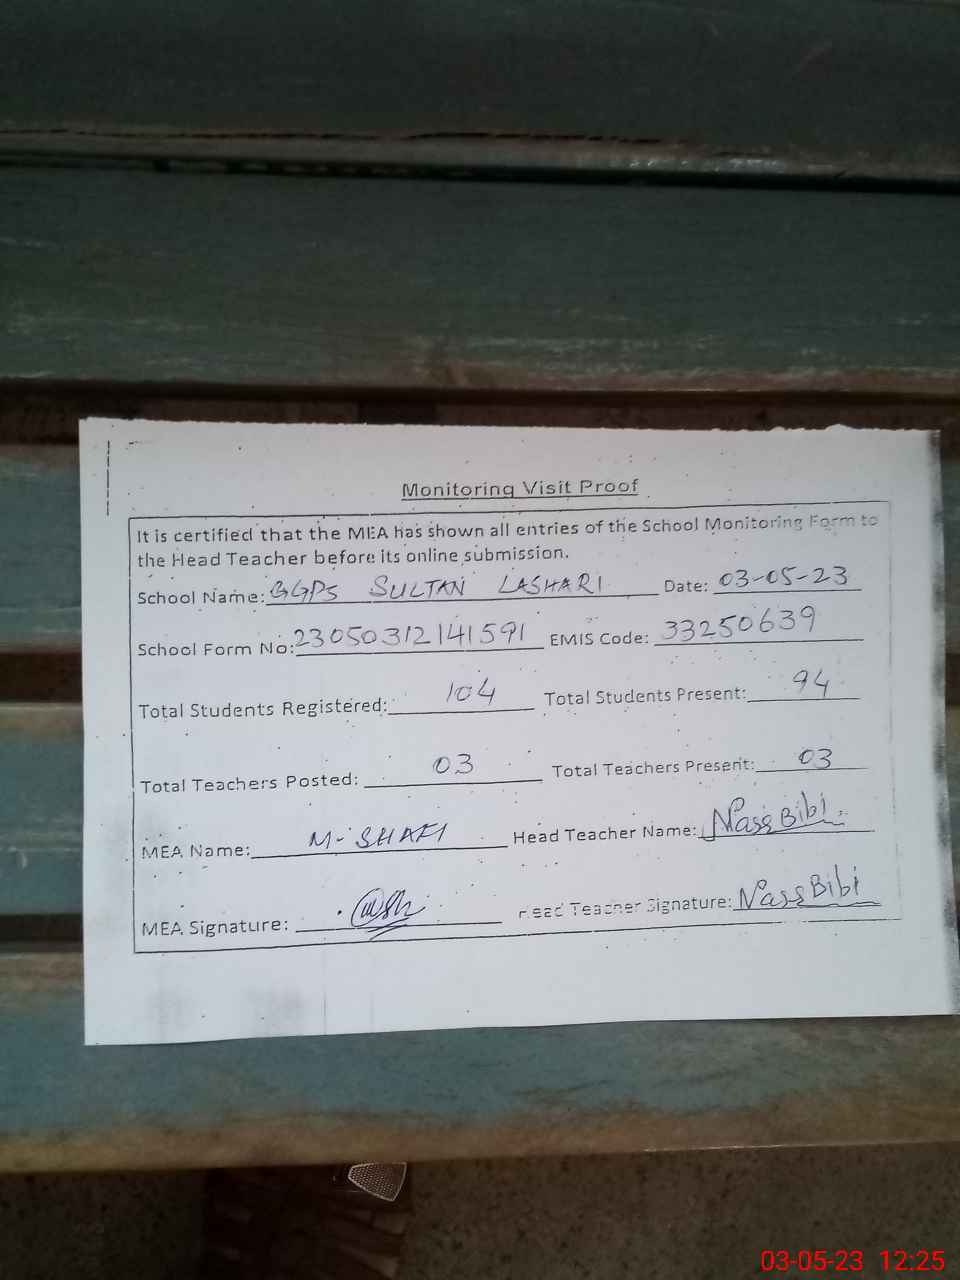 Monitoring Visit Proof
It is certified that the MEA has shown all entries of the School Monitoring Form to
the Head Teacher before its online submission.
School Name: GGPS SULTAN LASHARI Date: 03-05-23
School Form No: 23050312141591 EMIS Code: 33250639
Total Students Registered: 104 Total Students Present: 94
Total Teachers Posted: 03 Total Teachers Present: 03
MEA Name: M. SHAFI Head Teacher Name: Bibi
MEA Signature: Head Teacher Signature: Bibi
03-05-23 12:25